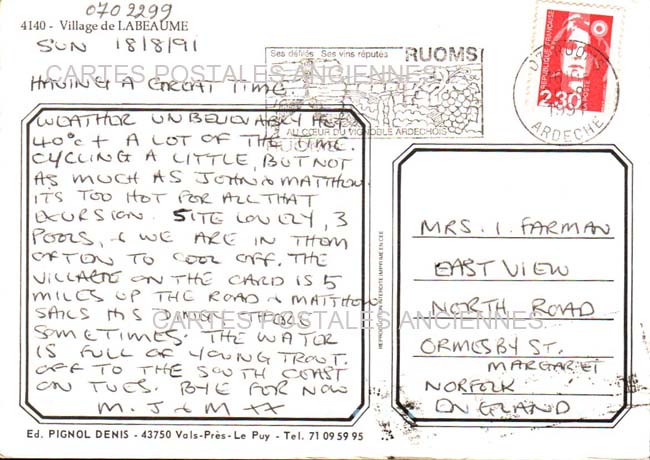 070 2299
4140 - Village de LABEAUME
SUN 18/8/91
HAVING A GREAT TIME
WEATHER UNBELIEVABLY HOT
40°C + A LOT OF THE TIME.
CYCLING A LITTLE, BUT NOT
AS MUCH AS JOHN & MATTHEW.
ITS TOO HOT FOR ALL THAT
EXCURSION. SITE LOVELY, 3
POOLS, & WE ARE IN THEM
OFTEN TO COOL OFF. THE
VILLAGE ON THE CARD IS 5
MILES UP THE ROAD & MATTHEW
SAILS HIS DINGY THERE
SOMETIMES. THE WATER
IS FULL OF YOUNG TROUT.
OFF TO THE SOUTH COAST
ON TUES. BYE FOR NOW
M. J & M XX
Ed. PIGNOL DENIS - 43750 Vals-Près-Le Puy - Tel. 71 09 59 95
CARTES POSTALES ANCIENNES
CARTES POSTALES ANCIENNES
Ses défilés Ses vins réputés RUOMS
AU CŒUR DU VIGNOBLE ARDECHOIS
REPRODUCTION INTERDITE IMPRIME EN CEE
RÉPUBLIQUE FRANÇAISE
2,30
1991
ARDECHE
MRS. I. FARMAN
EAST VIEW
NORTH ROAD
ORMESBY ST.
MARGARET
NORFOLK
ENGLAND